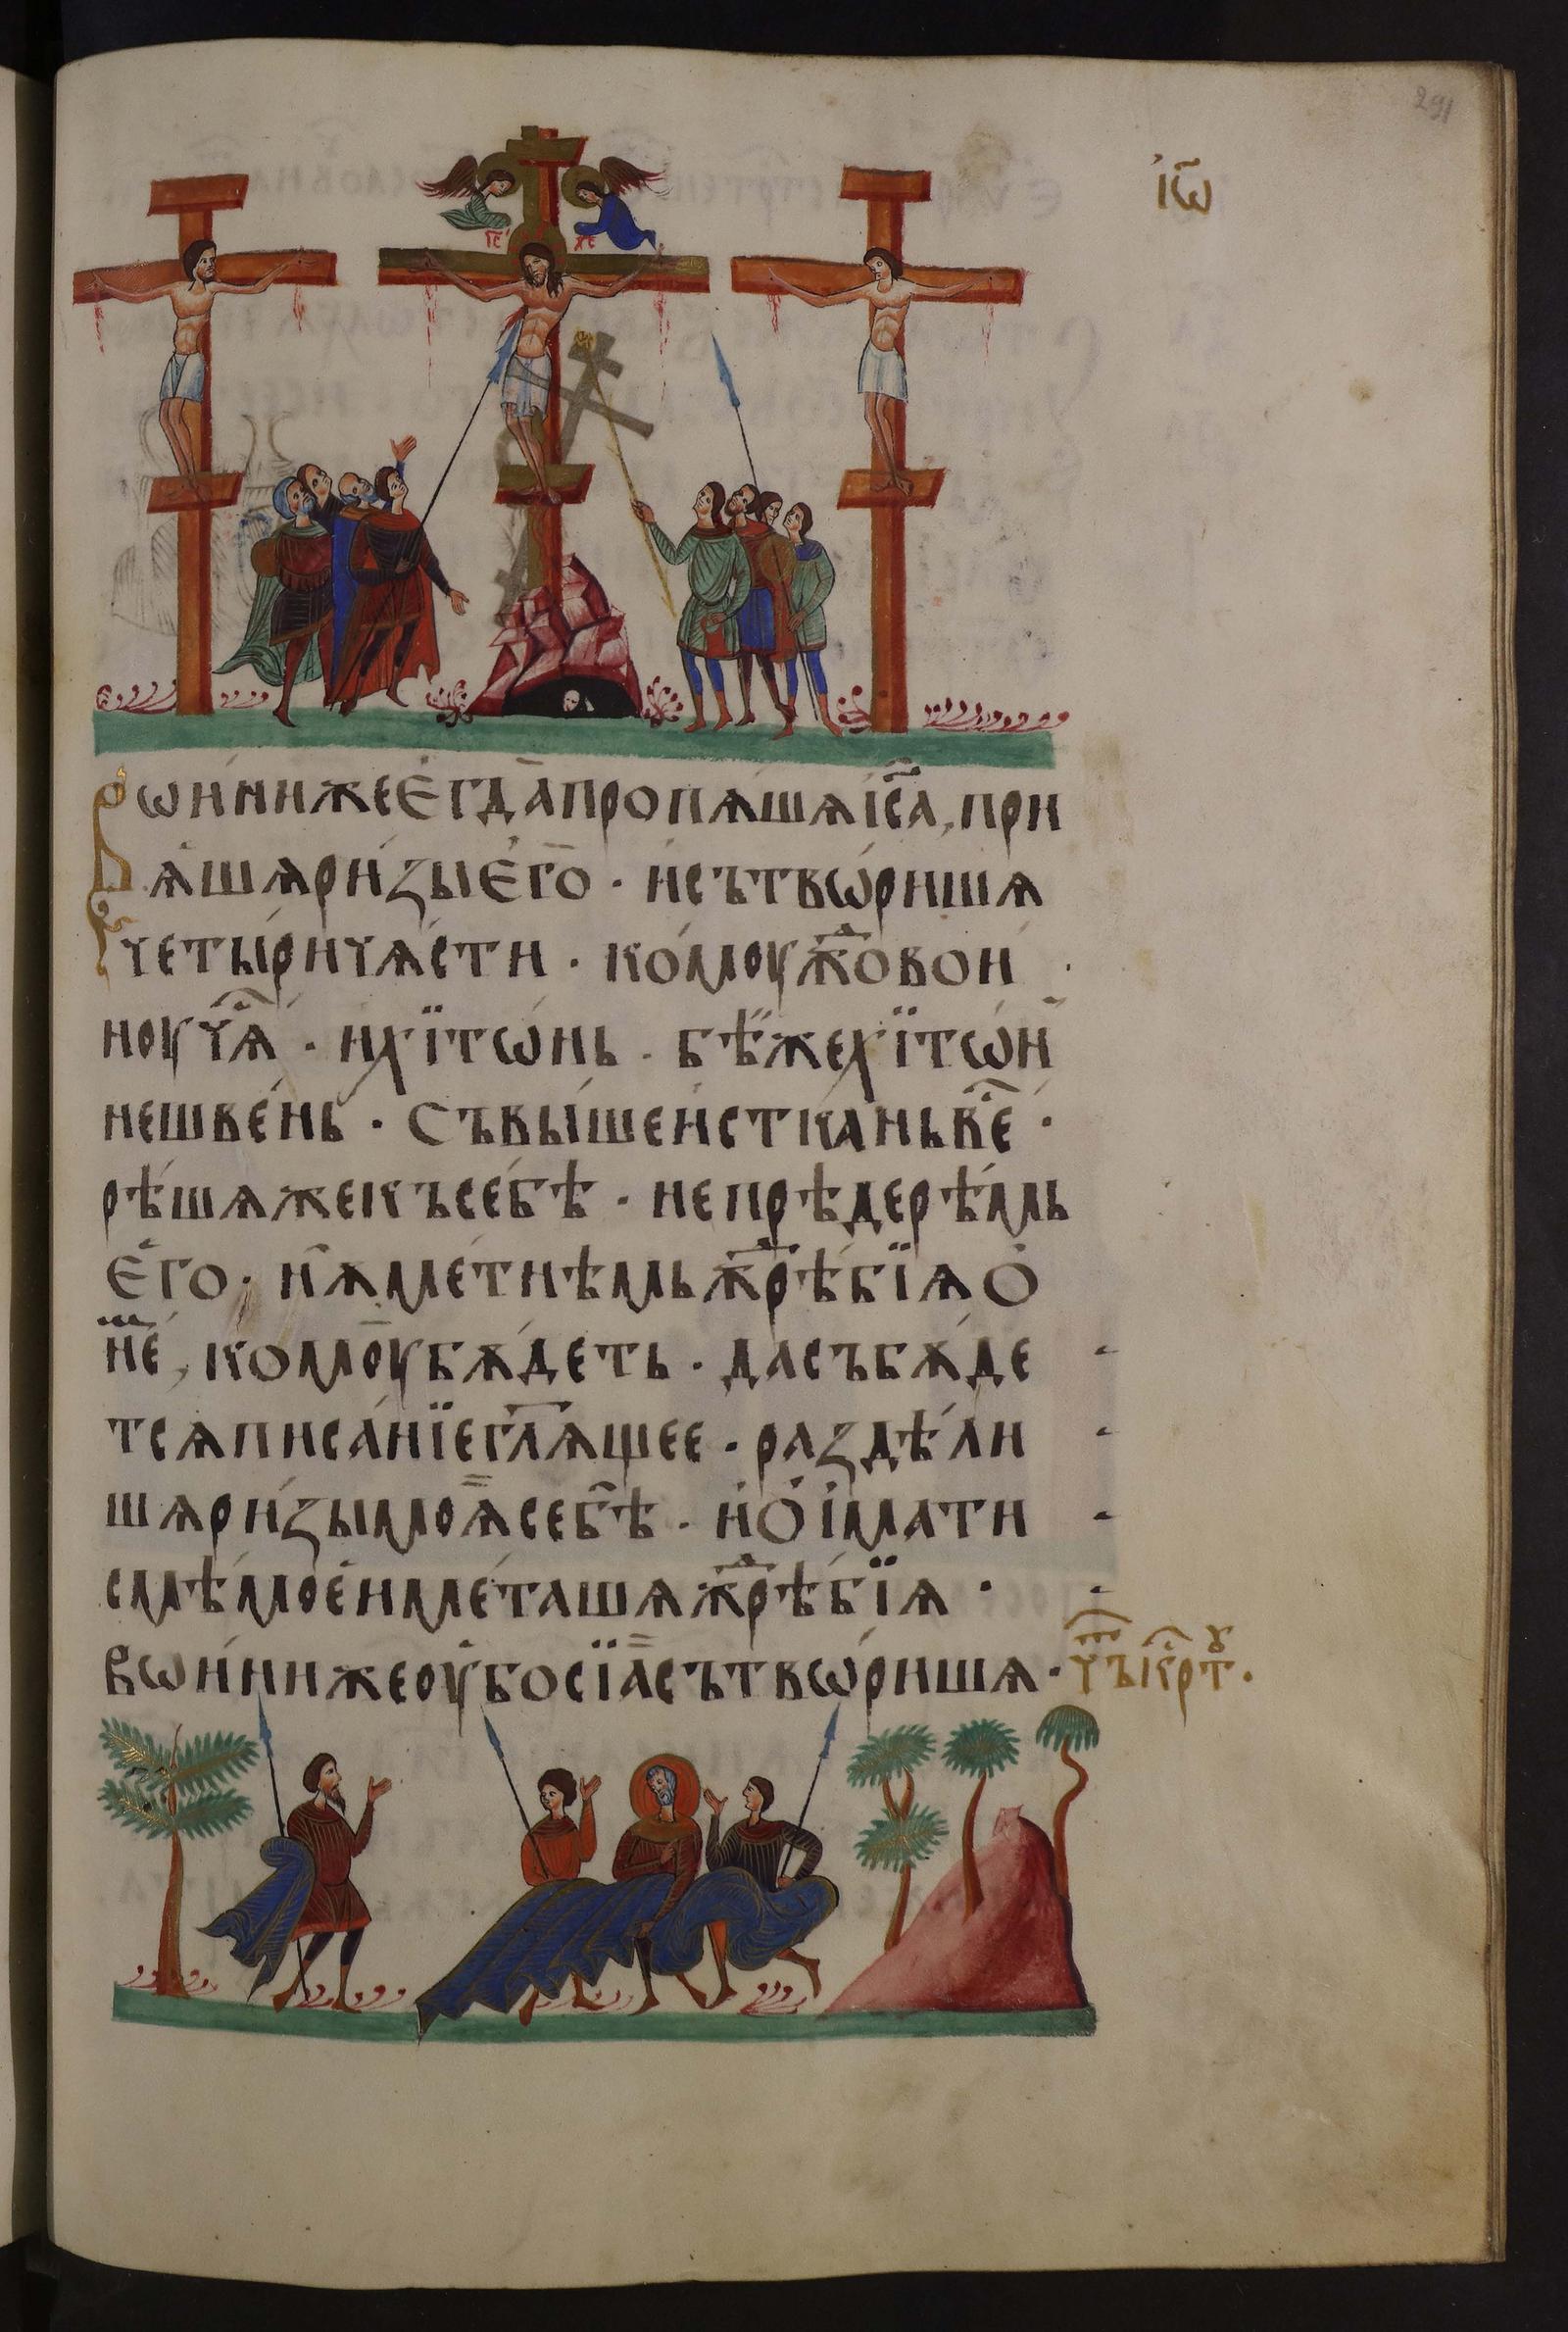 291
і҆ѡ҃
І҃С Х҃С
Вѡи́ни же є҆гда̀ пропѧ́шѧ і҆с҃а, прї
ѧ́шѧ ри́зы є҆го̀ · и҆ сътвѡ́ришѧ
четы́ри чѧ́сти · ко́моуж҃до вои́
ноу чѧ҇ · и҆ хїтѡ́нь · бѣ́ же хїтѡ́н
нешве́нь · съвы́ше и҆стка́нь в҇є ·
рѣ́шѧ же къ се́бѣ · не прѣдерѣ́мь
є҆го · нѧ ме́тнѣмь жрѣ́бїѧ ѻ҆
не́, комоу̀ бѫ́деть · да събѫ́де
тсѧ писа́нїе гл҃ѧщее · раздѣ́ли
шѧ ри́зы моѧ̀ себѣ̀ · и҆ ѻ҆ і҆мати
смѣ́ мое́и ме́ташѧ жрѣ́бїѧ ·
вѡи́ни же оу҆бо сїа̀ сътвѡ́ришѧ · чъ к҇рт ꙋ ·